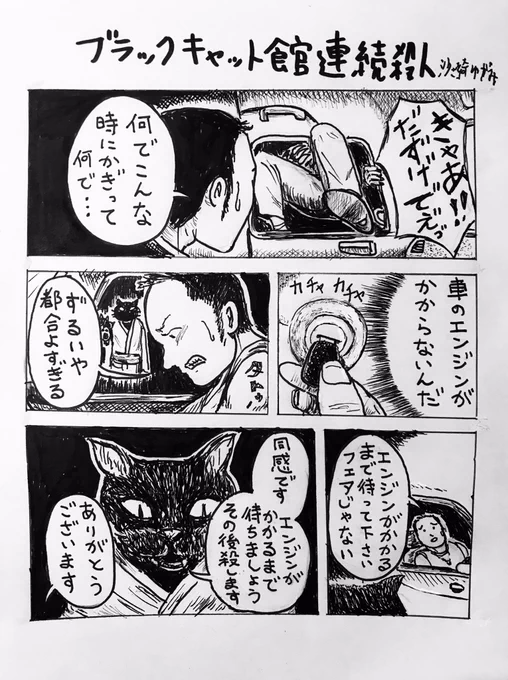 ブラックキャット館連続殺人
きゃあ!!
だずげでえっ
何でこんな
時にかぎって
何で…
車のエンジンが
かからないんだ
カチャ カチャ
ずるいや
都合よすぎる
エンジンがかかる
まで待って下さい
フェアじゃない
同感です
エンジンが
かかるまで
待ちましょう
その後殺します
ありがとう
ございます